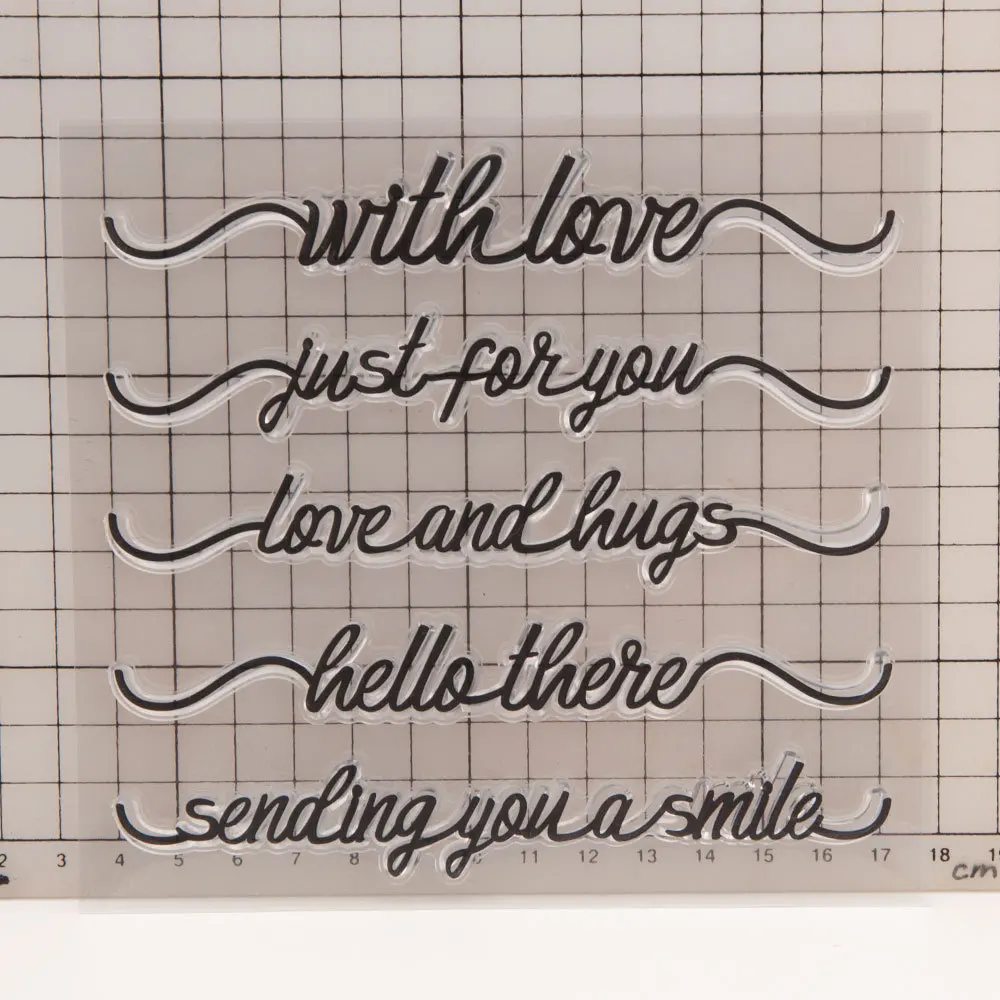 with love
just for you
love and hugs
hello there
sending you a smile
2 3 4 5 6 7 8 11 12 13 14 15 16 17 18
cm